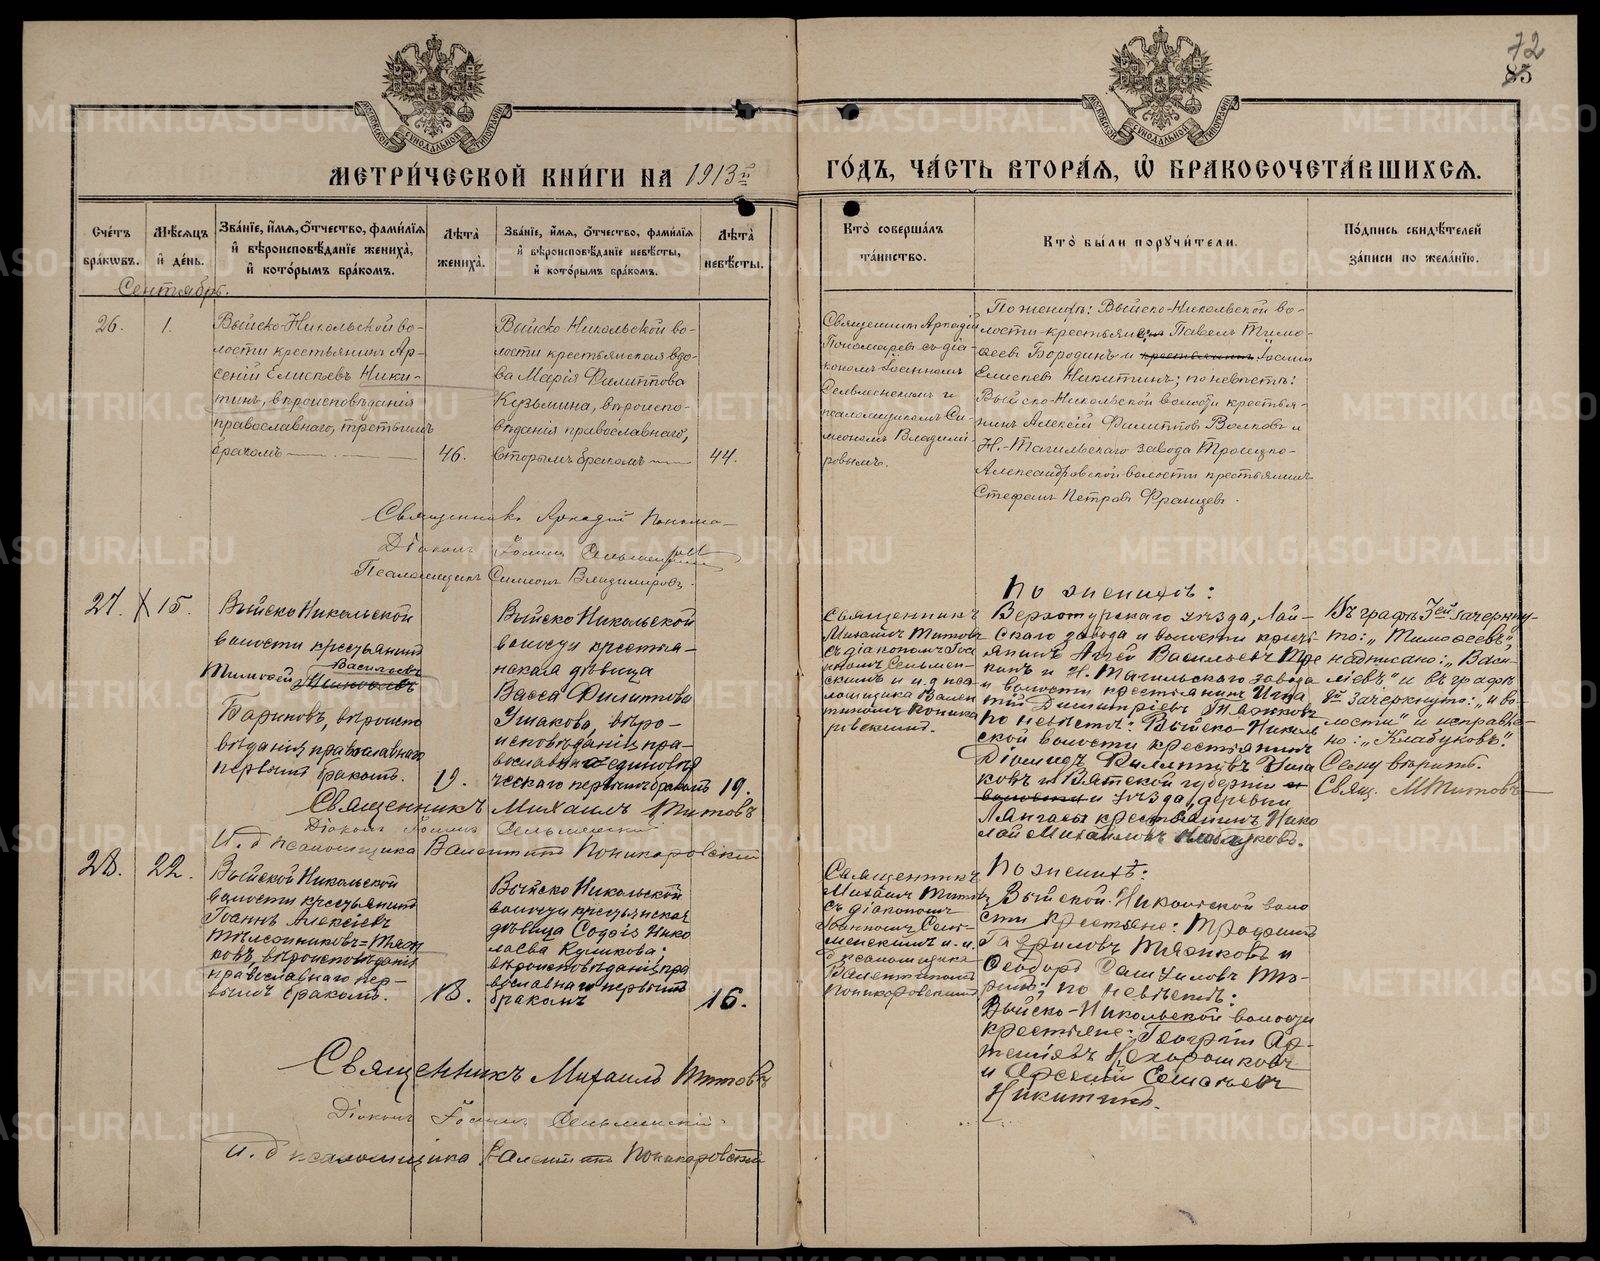 72
83
МОСКОВСКОЙ СѴНОДАЛЬНОЙ ТИПОГРАФІИ
МОСКОВСКОЙ СѴНОДАЛЬНОЙ ТИПОГРАФІИ
МЕТРИ́ЧЕСКОЙ КНИ́ГИ НА 1913й
ГО́ДЪ, ЧА́СТЬ ВТОРА́Я, Ѽ БРАКОСОЧЕТА́ВШИХСЯ.
Сче́тъ бра́кѡвъ.
Мѣ́сяцъ и҆ де́нь.
Зва́нїе, и҆́мя, ѻ҆́тчество, фами́лїя и҆ вѣроисповѣ́данїе жениха̀, и҆ кото́рымъ бра́комъ.
Лѣ́та жениха̀.
Зва́нїе, и҆́мя, ѻ҆́тчество, фами́лїя и҆ вѣроисповѣ́данїе невѣ́сты, и҆ кото́рымъ бра́комъ.
Лѣ́та невѣ́сты.
Кто̀ соверша́лъ та́инство.
Кто̀ бы́ли поручи́тели.
По́дпись свидѣ́телей за́писи по жела́нїю.
Сентябрь.
26.
1.
Выйско-Никольской во-
лости крестьянинъ Ар-
сеній Елисѣевъ Ники-
тинъ, вѣроисповѣданія
православнаго, третьимъ
бракомъ
46.
Выйско Никольской во-
лости крестьянская вдо-
ва Марія Филиппова
Кузьмина, вѣроиспо-
вѣданія православнаго,
вторымъ бракомъ
44.
Священникъ Аркадій
Пономаревъ съ діа-
кономъ Іоанномъ
Сельменскимъ и
псаломщикомъ Си-
меономъ Владимі-
ровымъ.
По женихѣ: Выйско-Никольской во-
лости крестьяне Павелъ Тимо-
феевъ Бородинъ и крестьянинъ Іоаннъ
Елисѣевъ Никитинъ; по невѣстѣ:
Выйско-Никольской волости крестья-
нинъ Алексій Филипповъ Волковъ и
Н.-Тагильскаго завода Троицко-
Александровской волости крестьянинъ
Стефанъ Петровъ Францевъ.
Священникъ Аркадій Понома-
Діаконъ Іоаннъ Сельменскій
Псаломщикъ Симеонъ Владиміровъ.
27.
15.
Выйско Никольской
волости крестьянинъ
Васильевъ
Тимофей Тимофеевъ
Бариновъ, вѣроиспо
вѣданія православнаго
первымъ бракомъ.
19.
Выйско Никольской
волости крестья-
нская дѣвица
Васса Филиппова
Ушакова, вѣро-
исповѣданія пра-
вославно единовѣр
ческаго первымъ бракомъ
19.
Священникъ
Михаилъ Титовъ
съ діакономъ Іоа
нномъ Сельмен-
скимъ и и.д пса
ломщика Вален
тиномъ Поникаро
вскимъ.
По женихѣ:
Верхотурскаго уѣзда, Лай-
скаго завода и волости крест
янинъ Васильевъ
и Н. Тагильскаго завода
и волости крестьянинъ Игна
тій Димитріевъ Тяжковъ
по невѣстѣ: Выйско-Николь
ской волости крестьянинъ
Діомидъ Филипповъ Уша
ковъ и Вятской губерніи и
волости и уѣзда, деревни
крестьянинъ Нико
лай Михаиловъ Клабуковъ.
Въ графѣ 3ей зачеркну-
то: „Тимофеевъ",
надписано: „Васи-
льевъ" и въ графѣ
зачеркнуто: „и во-
лости" и исправле-
но: „Клабуковъ".
Сему вѣрить.
Свящ. МТитовъ
Священникъ Михаилъ Титовъ
Діаконъ Іоаннъ Сельменскій
И. д псаломщика Валентинъ Поникаровскій
28.
22.
Выйской Никольской
волости крестьянинъ
Іоаннъ Алексіевъ
Тѣлесниковъ=Тяж
ковъ, вѣроисповѣданія
православнаго пер-
вымъ бракомъ.
18.
Выйско Никольской
волости крестьянская
дѣвица Софія Нико
лаева Куликова;
вѣроисповѣданія пра
вославнаго первымъ
бракомъ
16.
Священникъ
Михаилъ Титовъ
съ діакономъ
Іоанномъ Сель-
менскимъ и и.
д псаломщика
Валентиномъ
Поникаровскимъ
По женихѣ:
Выйской-Никольской воло
сти крестьяне: Трофимъ
Гавриловъ Тяжковъ и
Феодоръ Самуиловъ
по невѣстѣ:
Выйско-Никольской волости
крестьяне: Георгій Ар-
теміевъ Нехорошковъ
и Арсеній Елисѣевъ
Никитинъ.
Священникъ Михаилъ Титовъ
Діаконъ Іоаннъ Сельменскій
И. д псаломщика Валентинъ Поникаровскій
METRIKI.GASO-URAL.RU